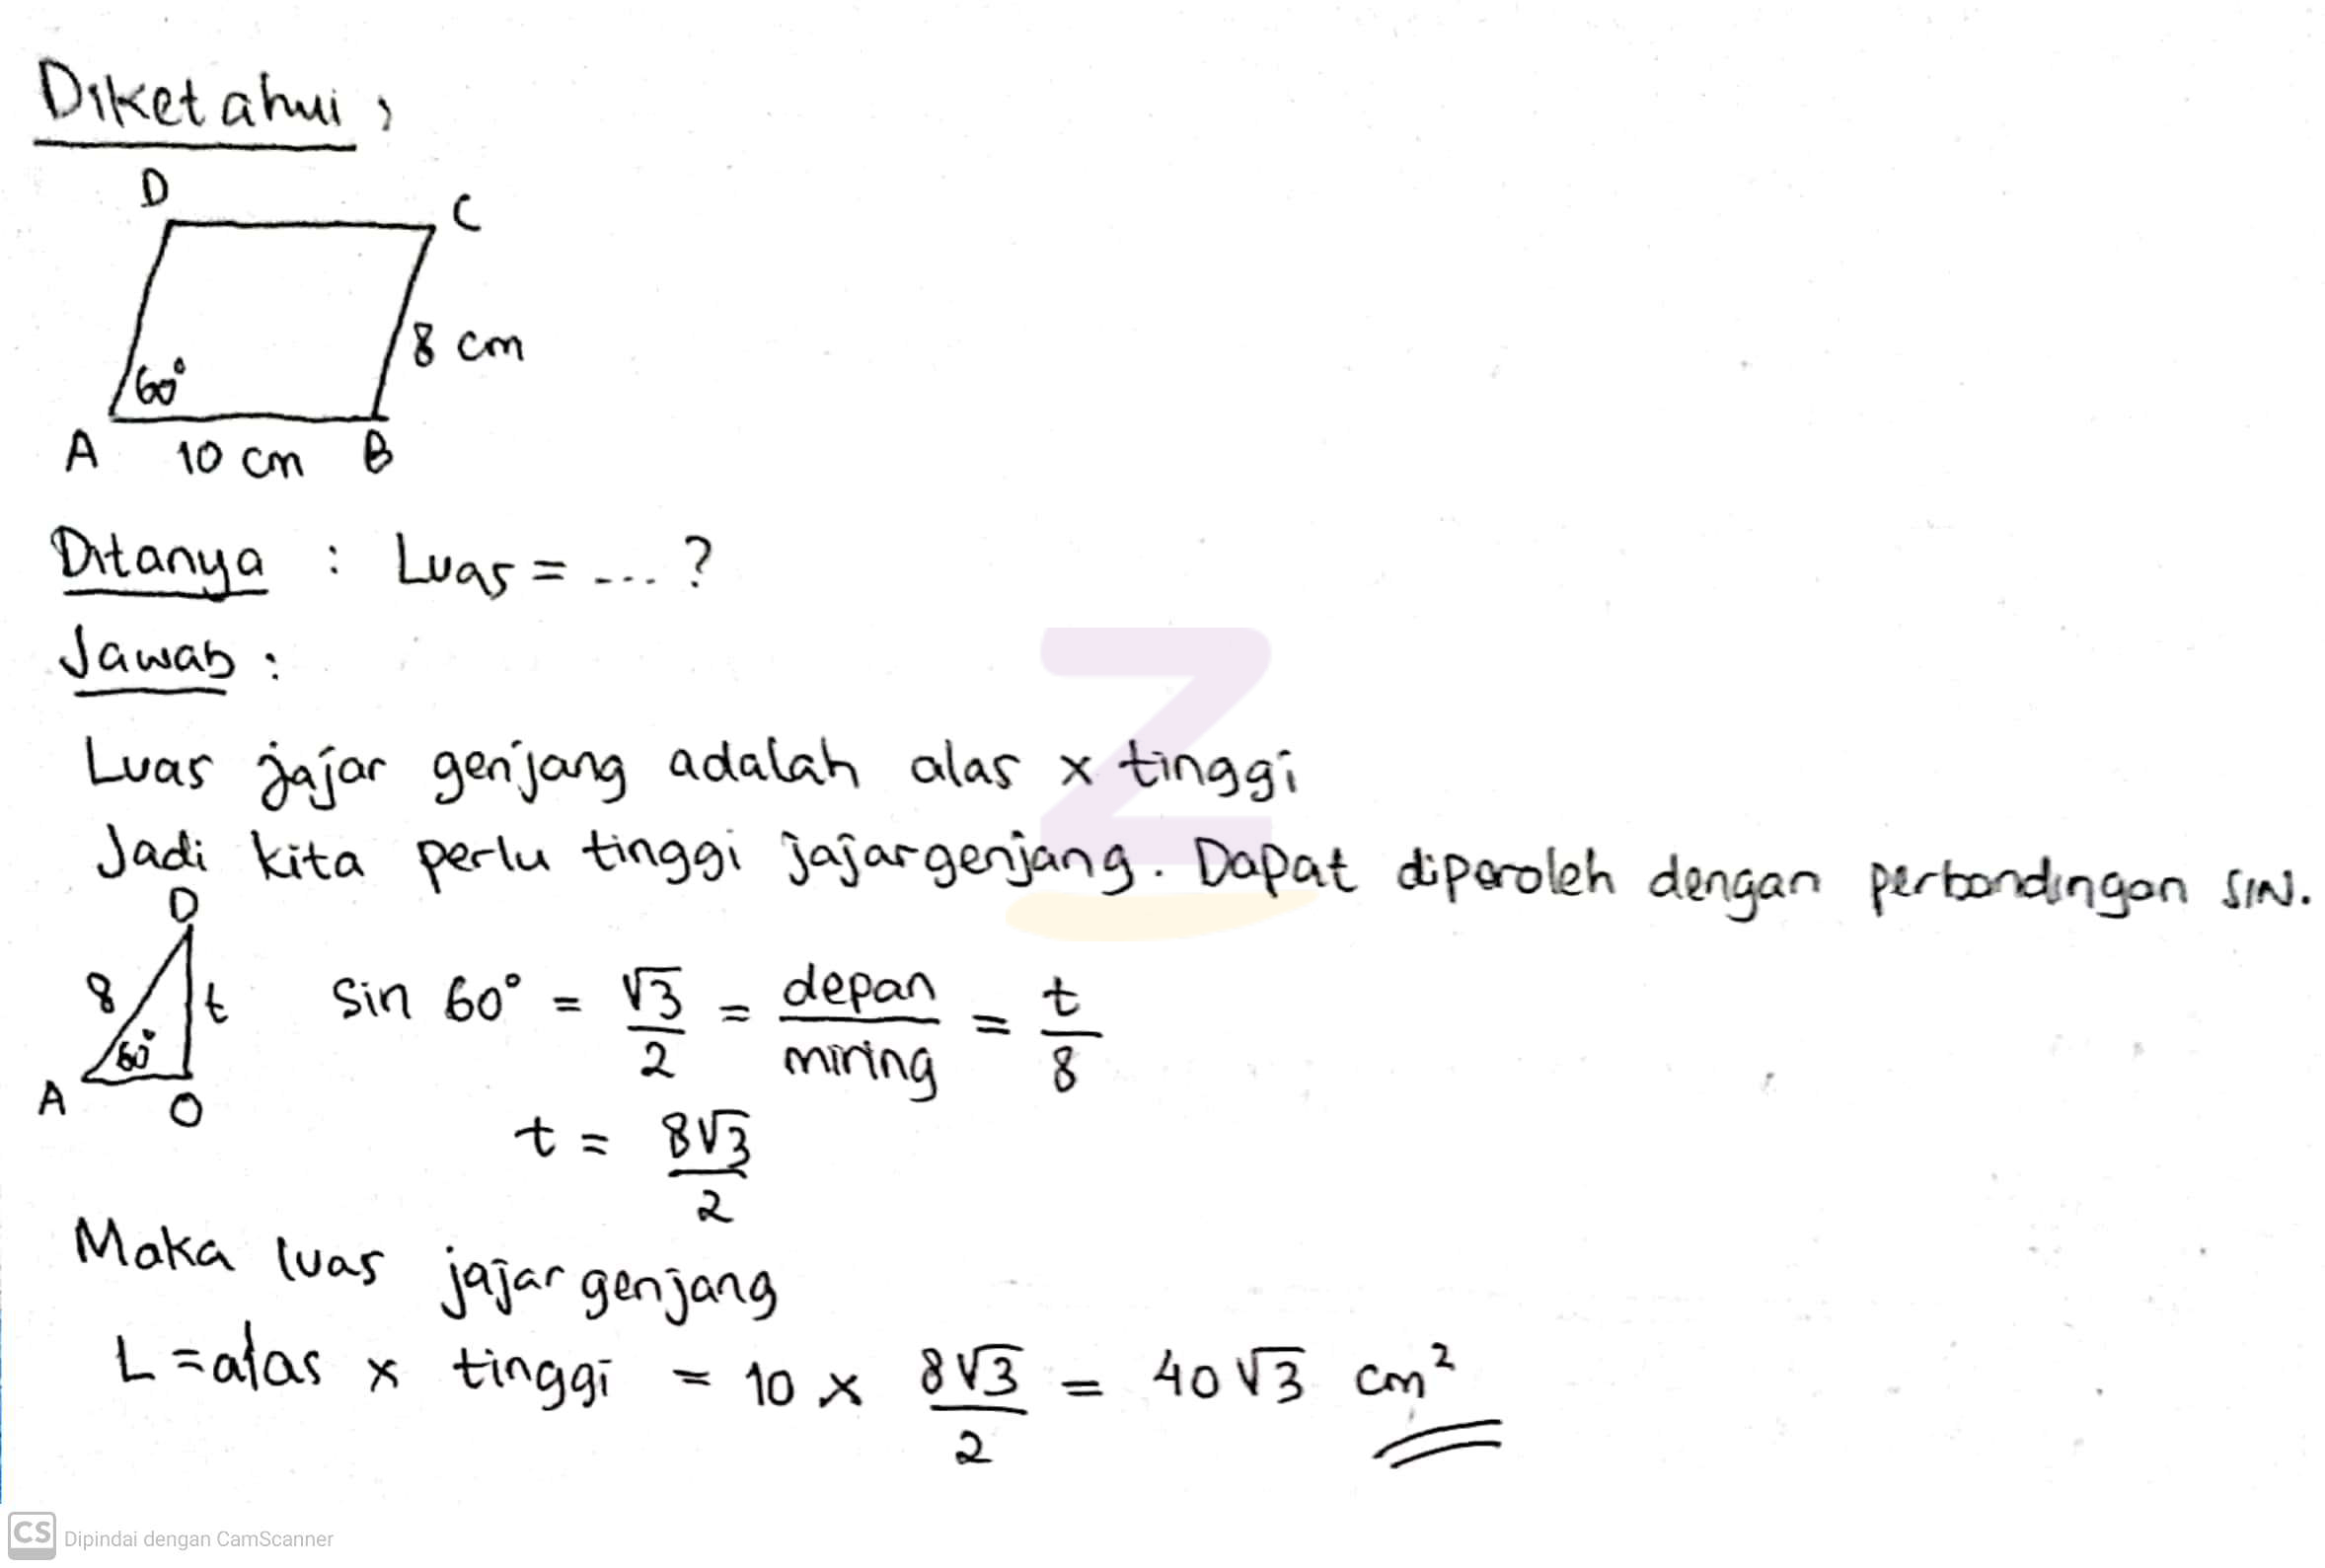 Diketahui,
D C
8 cm
60°
A 10 cm B
Ditanya : Luas = .... ?
Jawab :
Luas jajar genjang adalah alas x tinggi
Jadi kita perlu tinggi jajargenjang. Dapat diperoleh dengan perbandingan SIN.
D
8 t
60°
A O
Sin 60° = √3/2 = depan/miring = t/8
t = 8√3/2
Maka luas jajar genjang
L = alas x tinggi = 10 x 8√3/2 = 40√3 cm²
Z
CS Dipindai dengan CamScanner